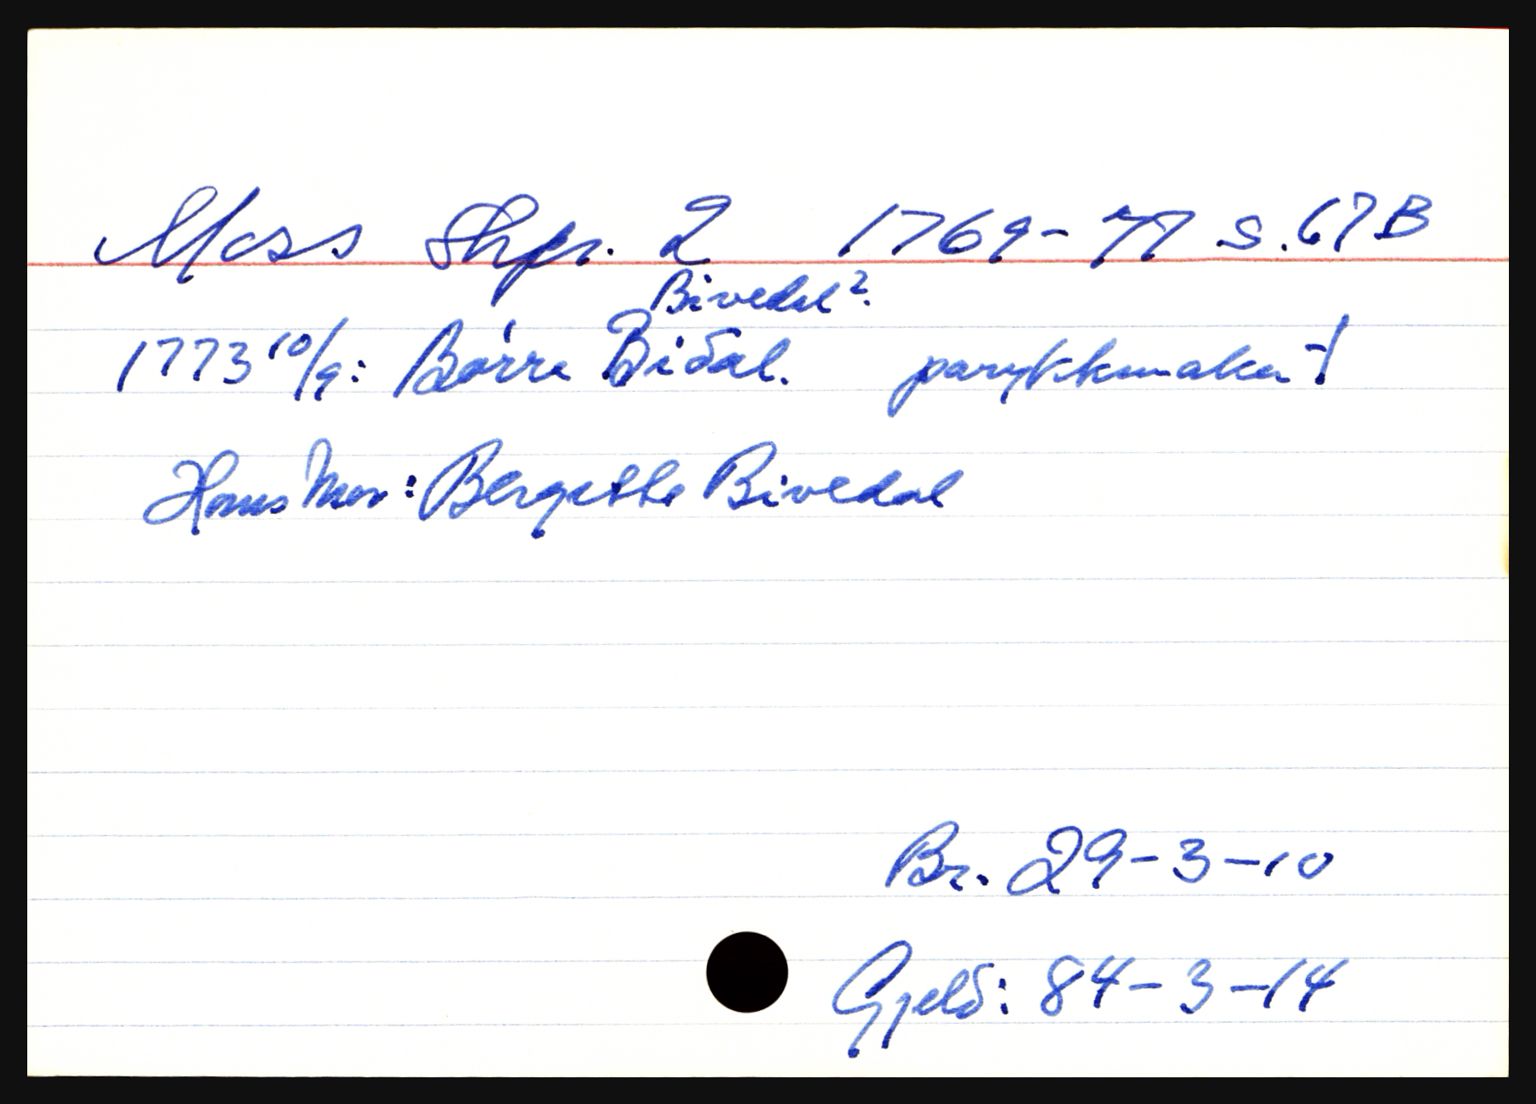 Moss Skpr. 2 1769-77 s.67B
Bivedal?
1773 10/9: Børre Bidal. parykkmaker †
Hans Mor: Bergethe Bivedal
Br. 29-3-10
Gjeld: 84-3-14